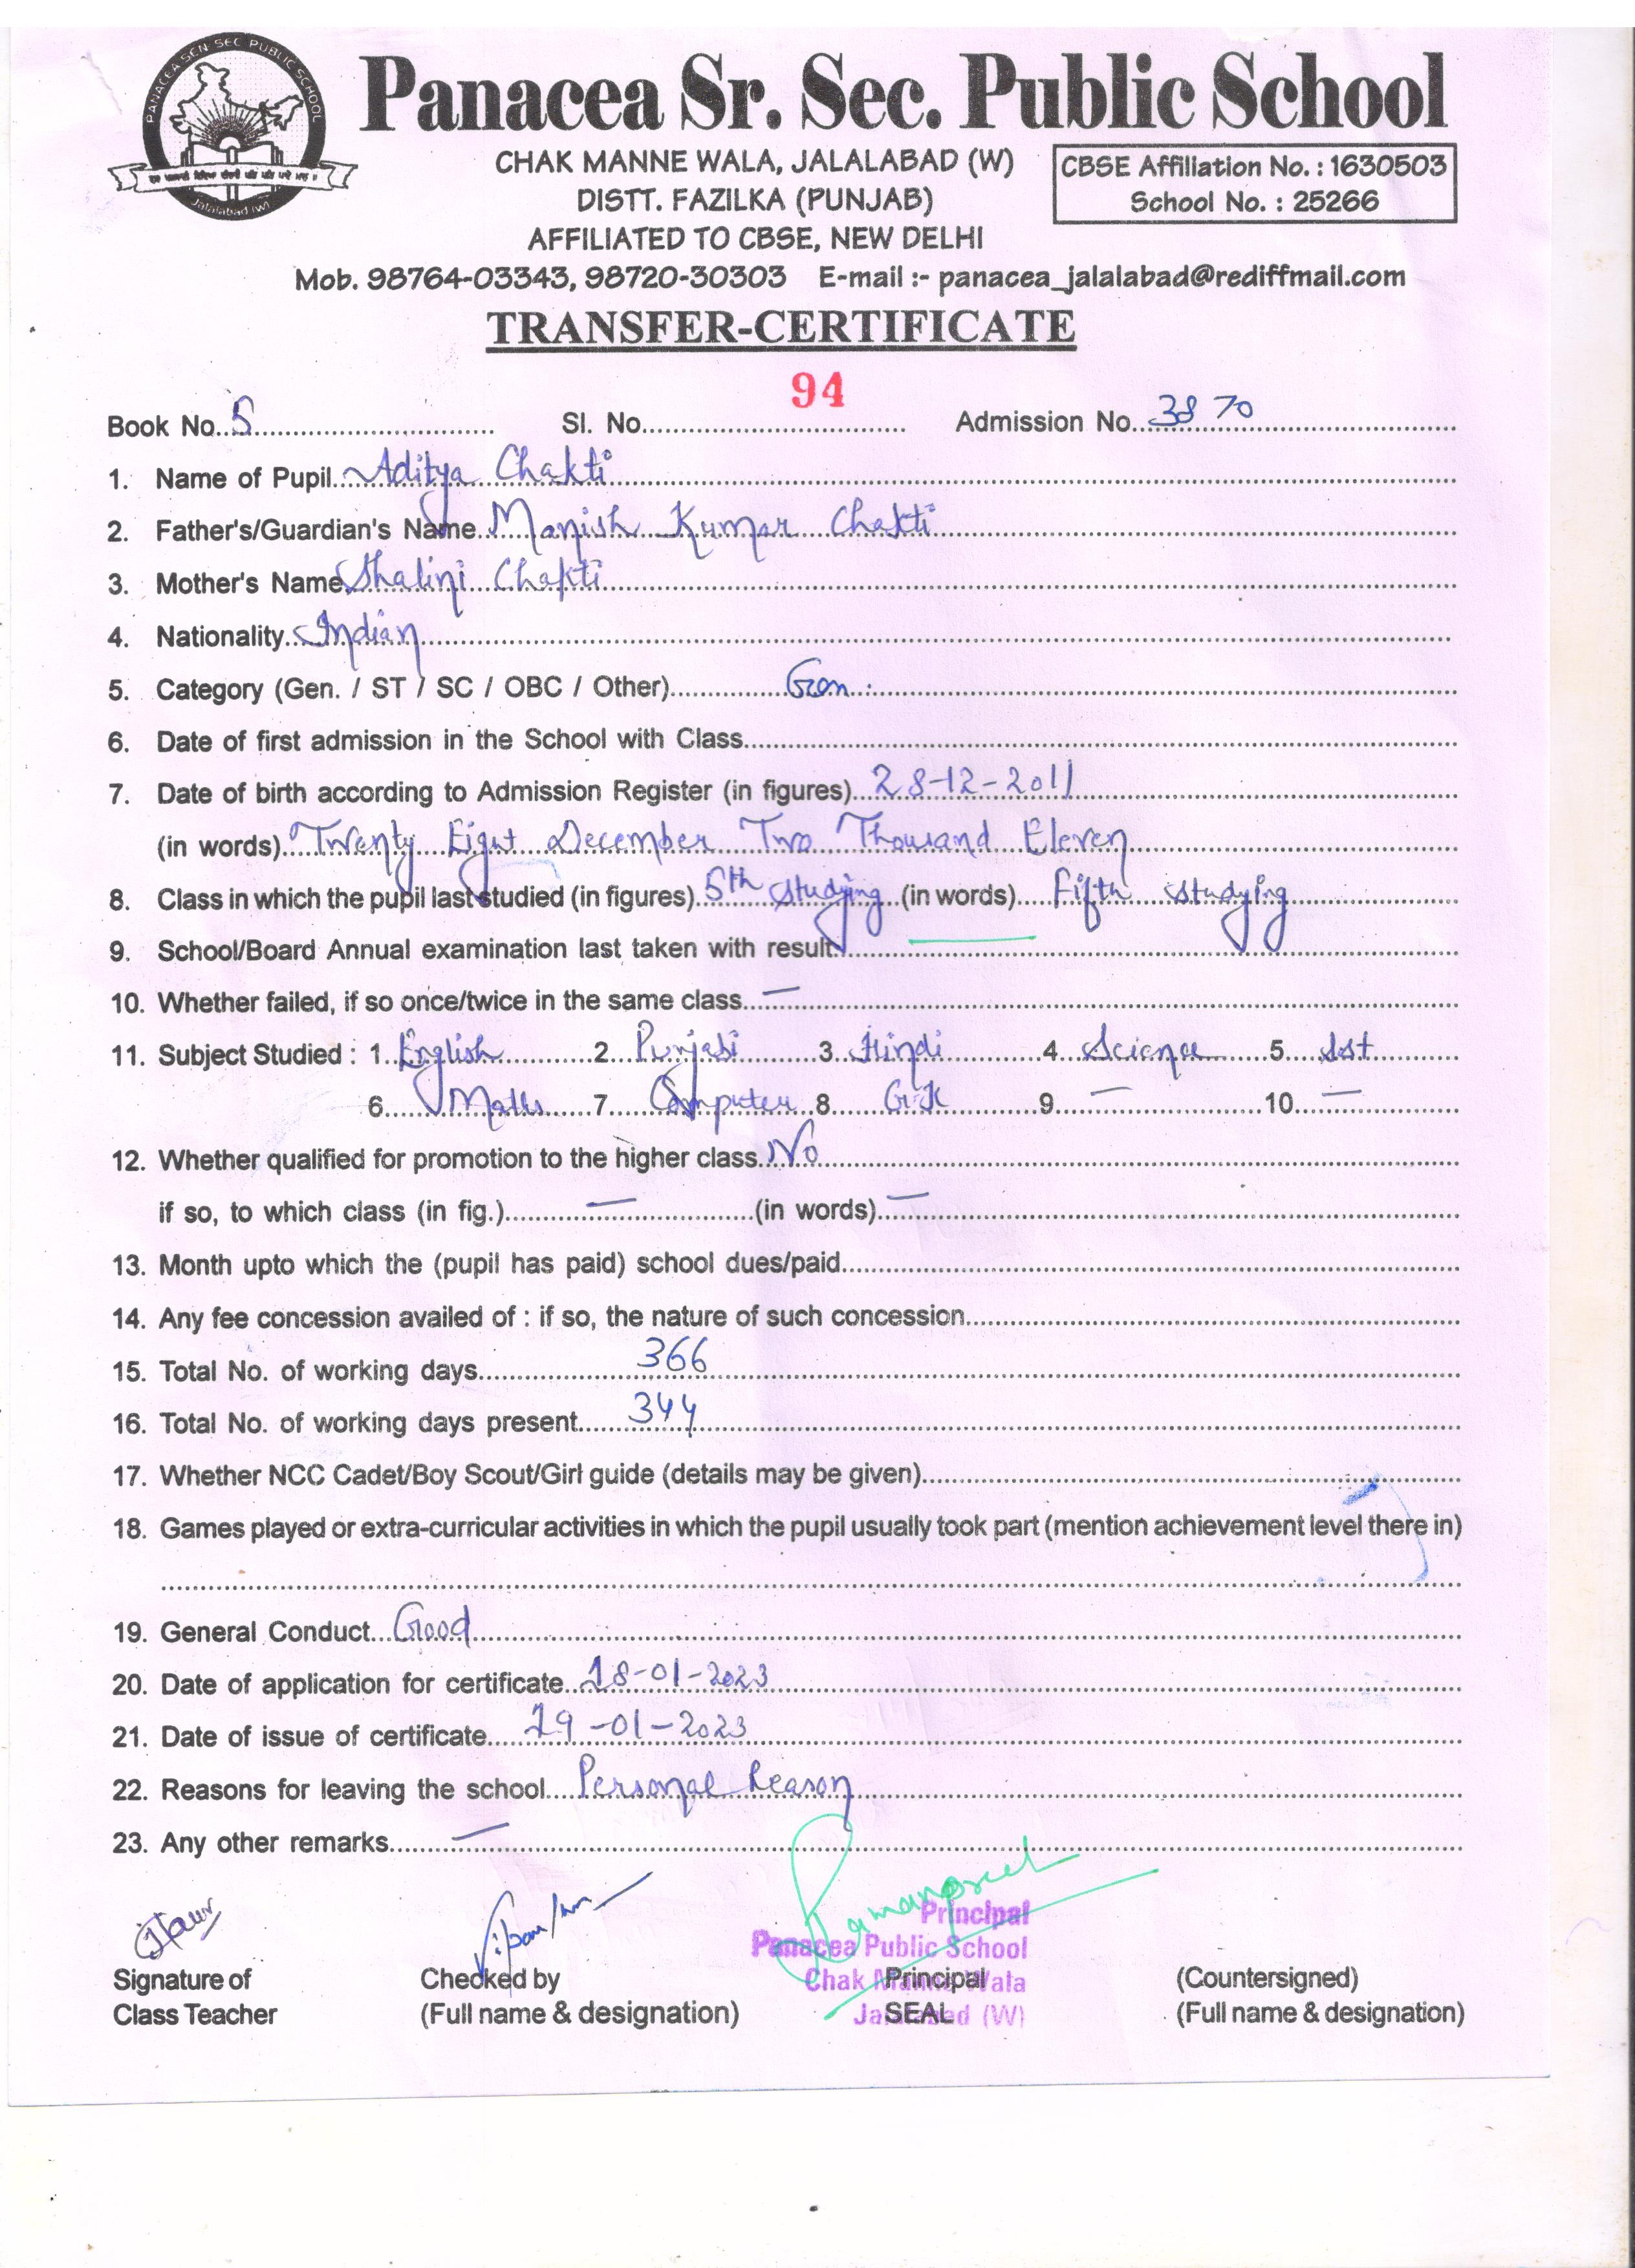 PANACEA SEN SEC PUBLIC SCHOOL
Jalalabad (W)
Panacea Sr. Sec. Public School
CHAK MANNE WALA, JALALABAD (W)
DISTT. FAZILKA (PUNJAB)
AFFILIATED TO CBSE, NEW DELHI
CBSE Affiliation No. : 1630503
School No. : 25266
Mob. 98764-03343, 98720-30303 E-mail :- panacea_jalalabad@rediffmail.com
TRANSFER-CERTIFICATE
94
Book No. 5 Sl. No. Admission No. 3870
1. Name of Pupil Aditya Chakti
2. Father's/Guardian's Name Manish Kumar Chakti
3. Mother's Name Shalini Chakti
4. Nationality Indian
5. Category (Gen. / ST / SC / OBC / Other) Gen.
6. Date of first admission in the School with Class
7. Date of birth according to Admission Register (in figures) 28-12-2011
(in words) Twenty Eight December Two Thousand Eleven
8. Class in which the pupil last studied (in figures) 5th studying (in words) Fifth studying
9. School/Board Annual examination last taken with result
10. Whether failed, if so once/twice in the same class —
11. Subject Studied : 1. English 2 Punjabi 3 Hindi 4 Science 5. Sst
6. Maths 7. Computer 8 G.K 9 — 10. —
12. Whether qualified for promotion to the higher class No
if so, to which class (in fig.) — (in words) —
13. Month upto which the (pupil has paid) school dues/paid
14. Any fee concession availed of : if so, the nature of such concession
15. Total No. of working days 366
16. Total No. of working days present 344
17. Whether NCC Cadet/Boy Scout/Girl guide (details may be given)
18. Games played or extra-curricular activities in which the pupil usually took part (mention achievement level there in)
19. General Conduct Good
20. Date of application for certificate 18-01-2023
21. Date of issue of certificate 19-01-2023
22. Reasons for leaving the school Personal Reason
23. Any other remarks —
Ramanpreet
Principal
Panacea Public School
Chak Manne Wala
Jalalabad (W)
Signature of Checked by Principal (Countersigned)
Class Teacher (Full name & designation) SEAL (Full name & designation)